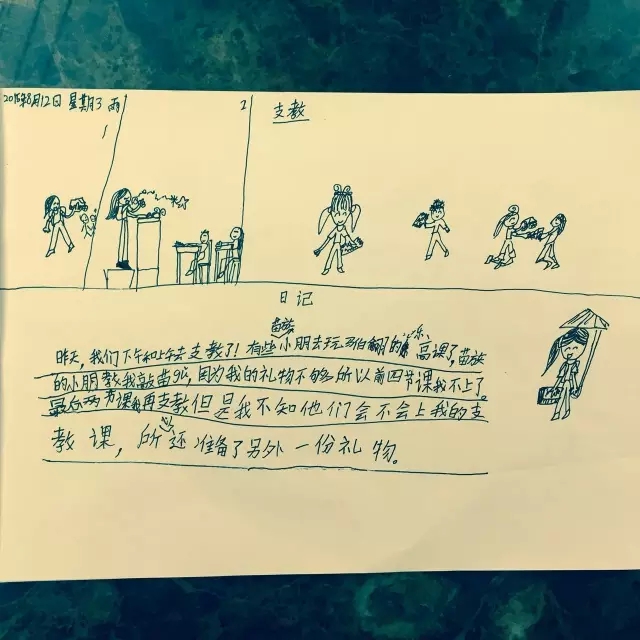 2015年8月12日 星期3 雨
1
2
支教
日记
苗族
昨天,我们下午和上午去支教了!有些小朋去玩 的乐高课了,苗族
的小朋教我敲苗鼓,因为我的礼物不够所以前四节课我不上了。
最后两节课我再支教但是我不知他们会不会上我的支
教课,所还准备了另外一份礼物。